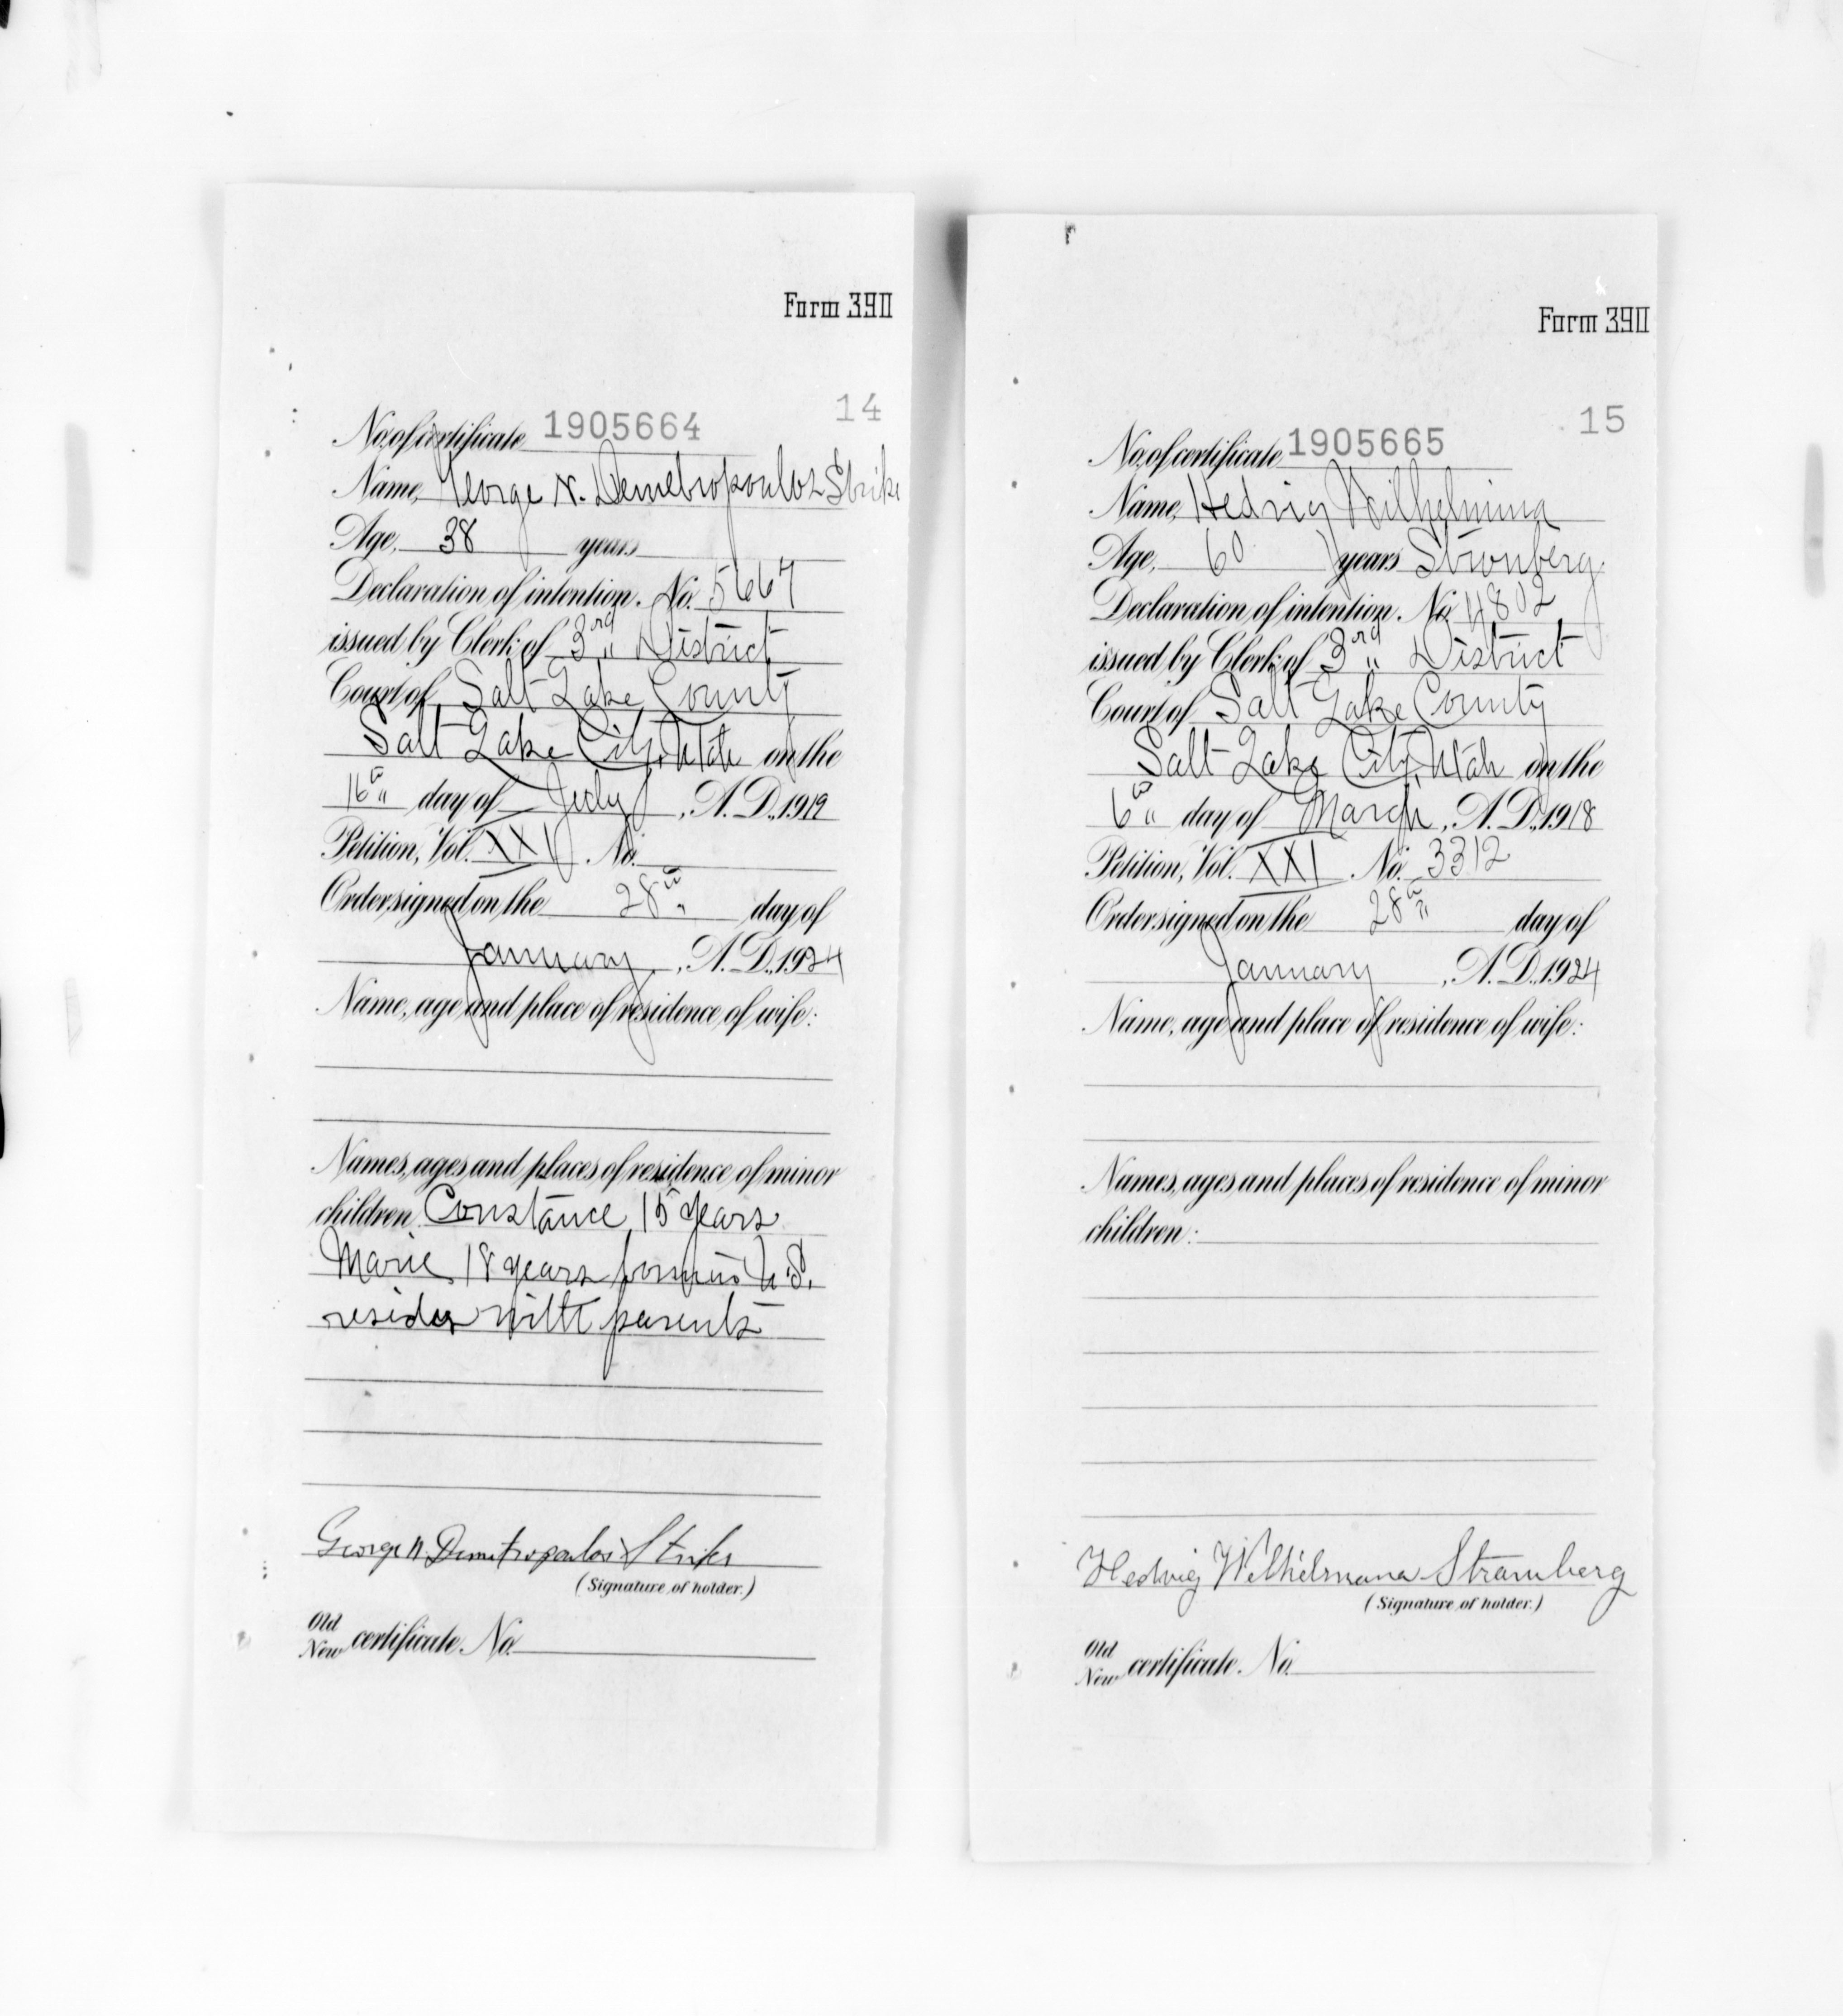 Form 390
14
No. of certificate 1905664
Name, George N. Demetropoulos Strike
Age, 38 years
Declaration of intention, No. 5667
issued by Clerk of 3rd District
Court of Salt Lake County
Salt Lake City, Utah on the
16th day of July, A.D., 1919
Petition, Vol. XXI. No.
Order signed on the 28th day of
January, A.D., 1924
Name, age and place of residence of wife:
Names, ages and places of residence of minor
children Constance, 15 years
Marie 18 years born in U.S.
resides with parents
George N. Demetropoulos Strike
(Signature of holder.)
Old
New certificate No.
Form 390
15
No. of certificate 1905665
Name, Hedvig Wilhelmina
Age, 60 years Stromberg
Declaration of intention, No. 4802
issued by Clerk of 3rd District
Court of Salt Lake County
Salt Lake City, Utah on the
6th day of March, A.D., 1918
Petition, Vol. XXI. No. 3312
Order signed on the 28th day of
January, A.D., 1924
Name, age and place of residence of wife:
Names, ages and places of residence of minor
children:
Hedvig Wilhelmina Stromberg
(Signature of holder.)
Old
New certificate No.